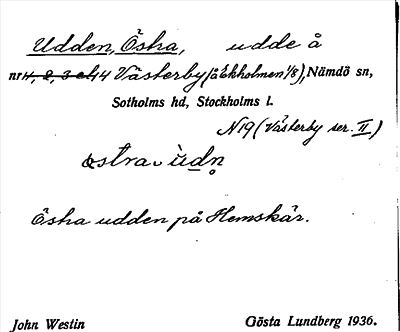 Udden, Östra, udde å
nr 1, 2, 3 el. 4 Västerby (å Ekholmen 1/8), Nämdö sn,
Sotholms hd, Stockholms l.
N19 (Västerby ser. II)
östra ùdn̥
Östra udden på Hemskär.
John Westin Gösta Lundberg 1936.